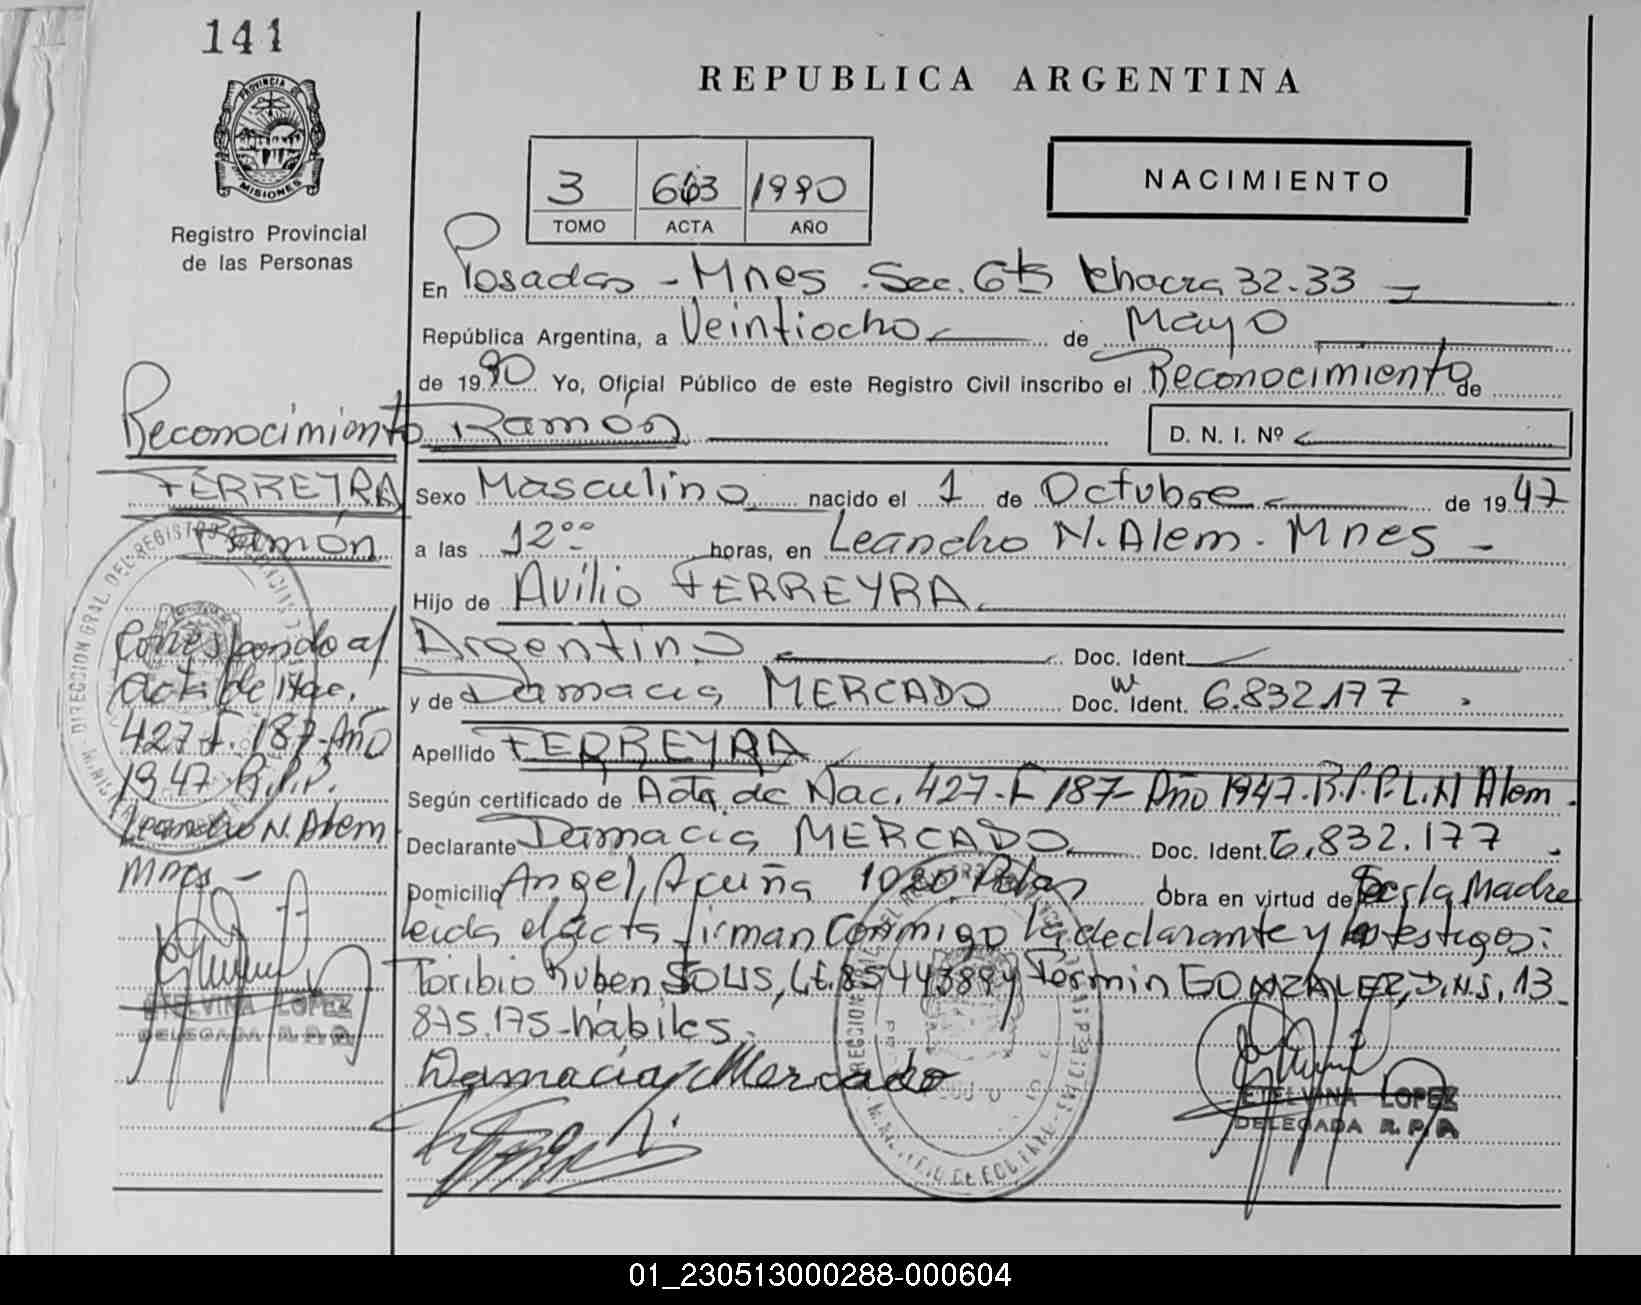 141
PROVINCIA DE
MISIONES
Registro Provincial
de las Personas
REPUBLICA ARGENTINA
3 663 1990
TOMO ACTA AÑO
NACIMIENTO
En Posadas - Mnes. Sec. 6ta Chacra 32-33
República Argentina, a Veintiocho de Mayo
de 1990 Yo, Oficial Público de este Registro Civil inscribo el Reconocimiento de
Ramón D. N. I. Nº
Sexo Masculino nacido el 1 de Octubre de 1947
a las 12oo horas, en Leandro N. Alem - Mnes -
Hijo de Avilio FERREYRA
Argentino Doc. Ident.
y de Damacia MERCADO Doc. Ident. 6.832.177
Apellido FERREYRA
Según certificado de Acta de Nac. 427-F 187- Año 1947-R.P.P. L.N Alem.
Declarante Damacia MERCADO Doc. Ident. 6.832.177
Domicilio Angel Acuña 1020 Pdas Obra en virtud de Ser la Madre
leida el acta firman conmigo la declarante y los testigos:
Toribio Ruben SOLIS, L.E. 8544388 y Fermin GONZALEZ, D.N.I. 13.
875.175-hábiles.
Damacia Mercado
ETELVINA LOPEZ
DELEGADA R. P. P.
Reconocimiento
FERREYRA
Ramón
Corresponde al
acta de Nac.
427-F. 187-Año
1947 R.P.P.
Leandro N. Alem
Mnes -
ETELVINA LOPEZ
DELEGADA R. P. P.
01_230513000288-000604